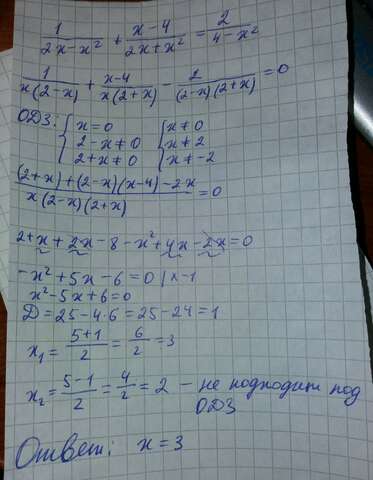 1/(2x-x²) + (x-4)/(2x+x²) = 2/(4-x²)
1/(x(2-x)) + (x-4)/(x(2+x)) - 2/((2-x)(2+x)) = 0
ОДЗ: { x=0 { x≠0
2-x≠0 x≠2
2+x≠0 x≠-2
((2+x)+(2-x)(x-4)-2x)/(x(2-x)(2+x)) = 0
2+x+2x-8-x²+4x-2x=0
-x²+5x-6=0 | x-1
x²-5x+6=0
D=25-4·6=25-24=1
x₁= (5+1)/2 = 6/2 =3
x₂= (5-1)/2 = 4/2 = 2 - не подходит под
ОДЗ
Ответ: x=3